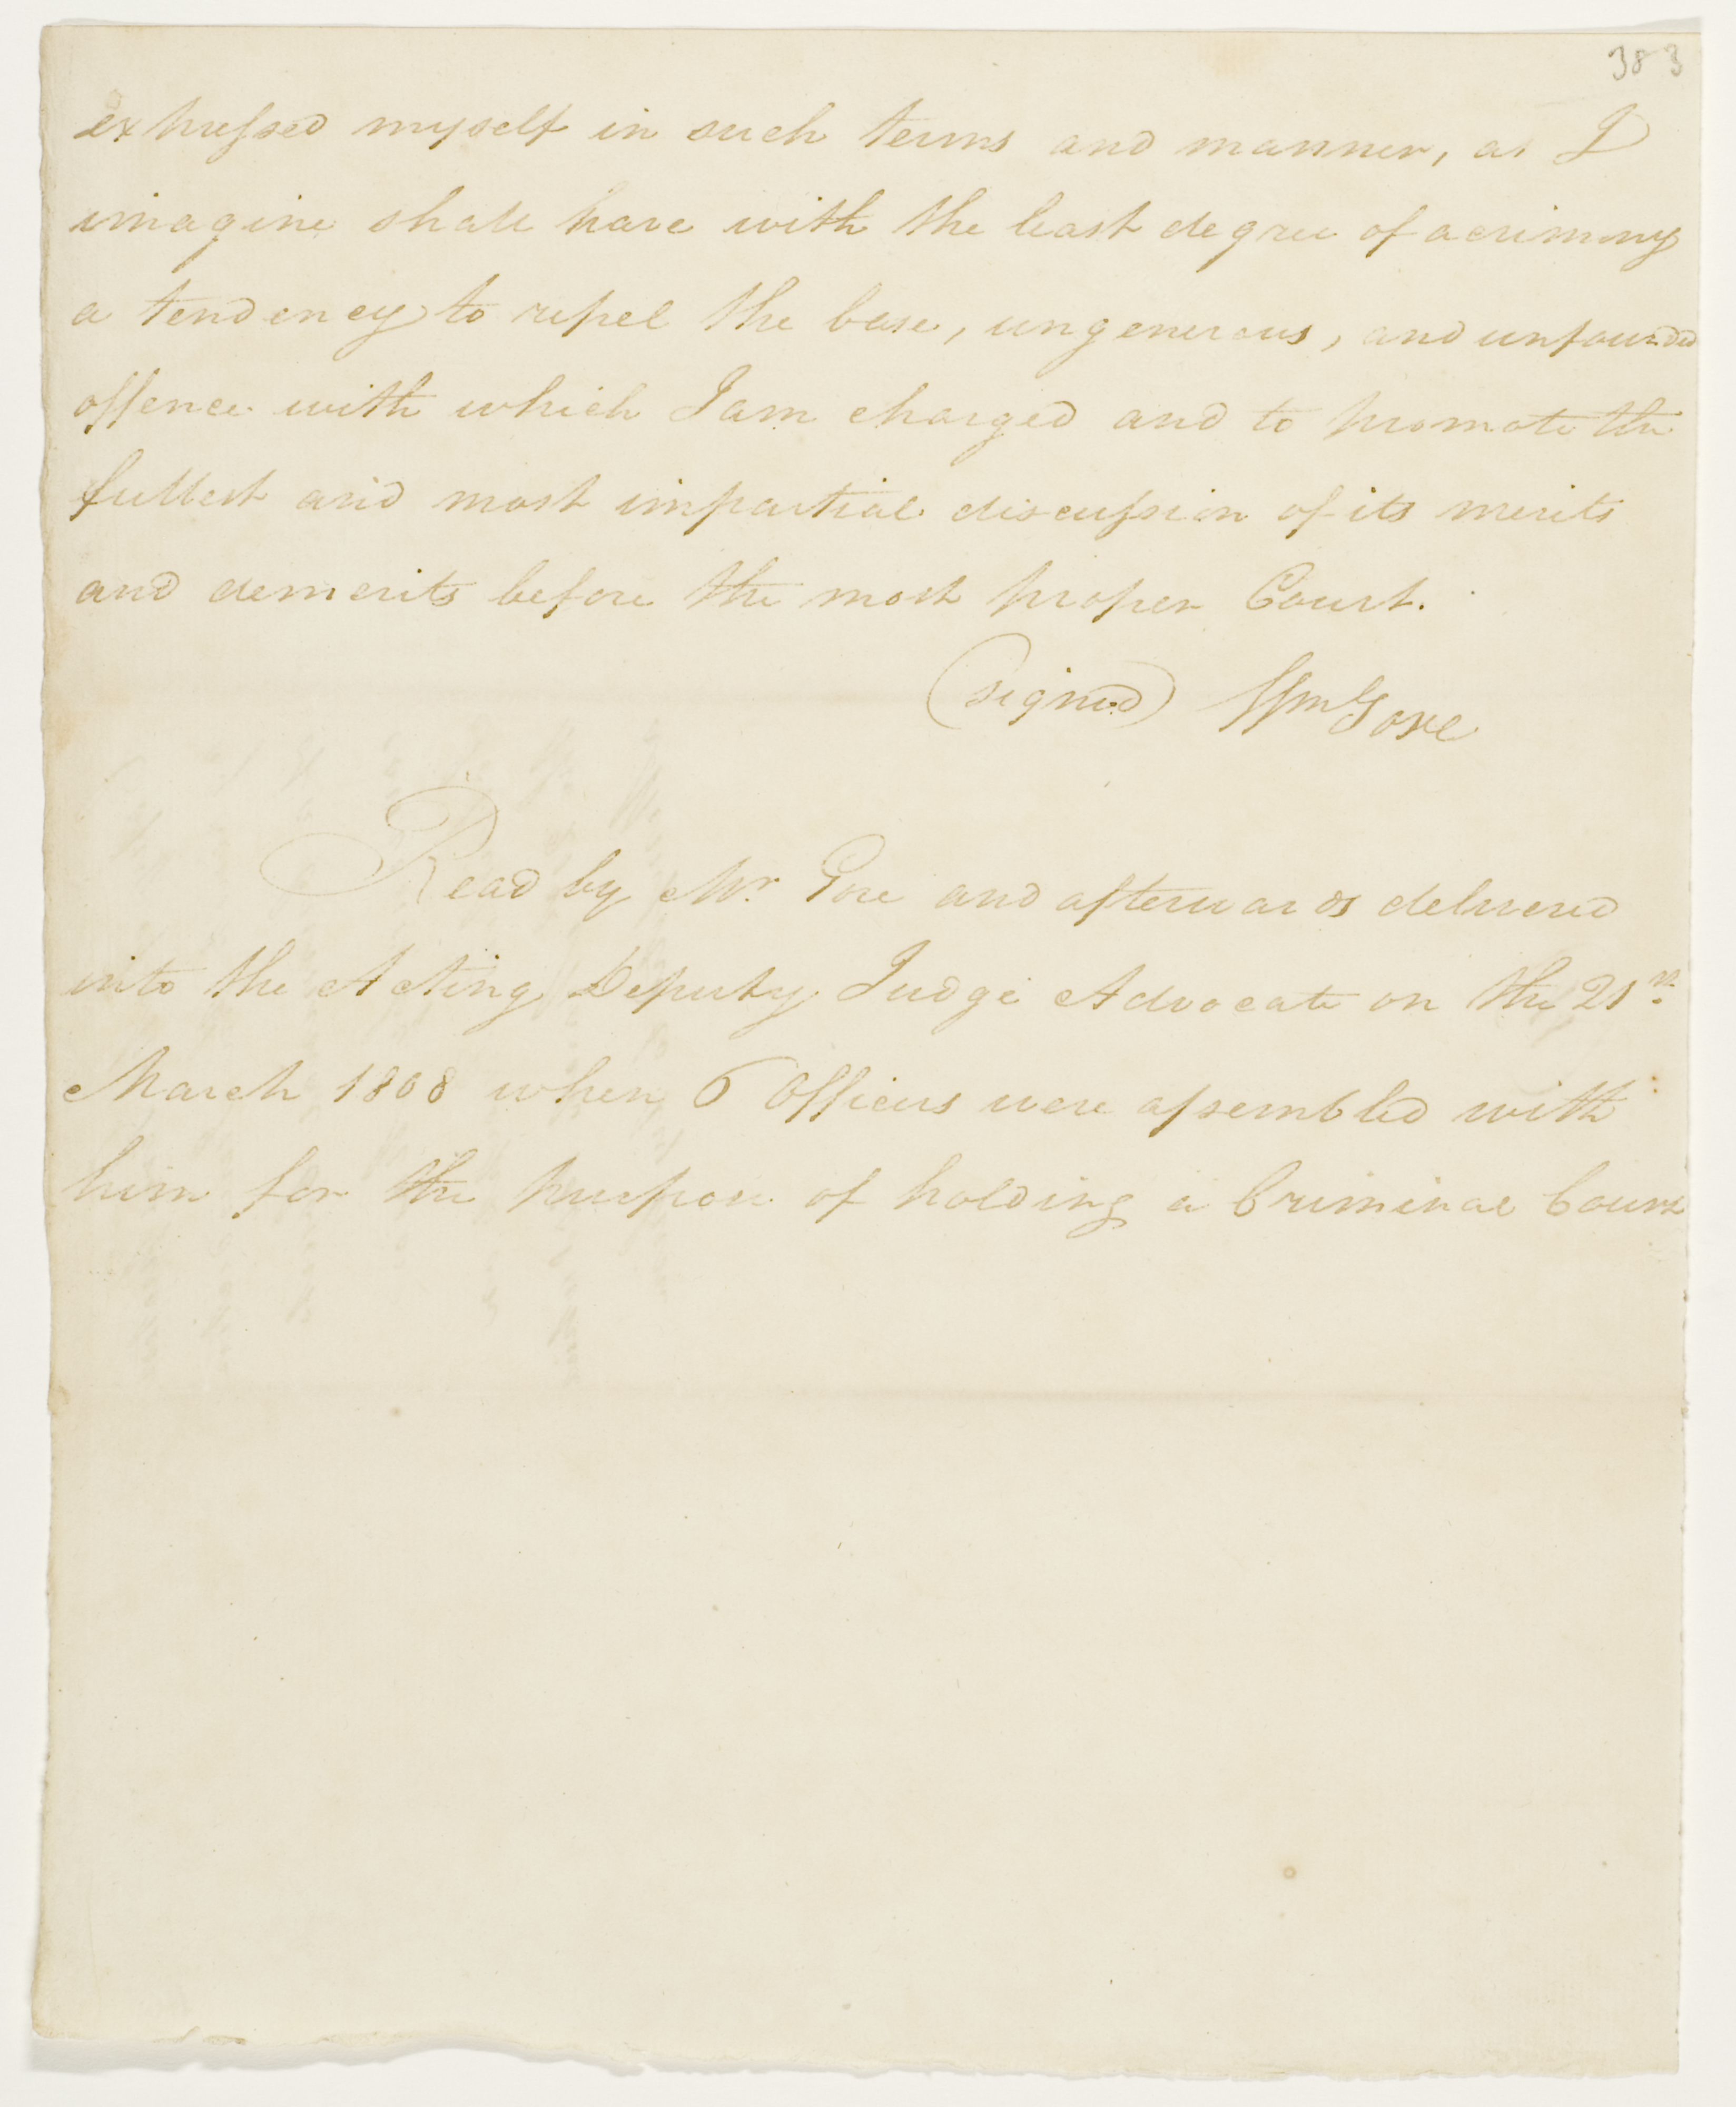 383
expressed myself in such terms and manner, as I
imagine shall have with the least degree of acrimony
a tendency to repel the base, ungenerous, and unfounded
offence with which I am charged and to promote the
fullest and most impartial discussion of its merits
and demerits before the most proper Court.
(signed) Wm Gore
Read by Mr. Gore and afterwards delivered
into the Acting Deputy Judge Advocate on the 21st.
March 1808 when 6 Officers were assembled with
him for the purpose of holding a Criminal Court